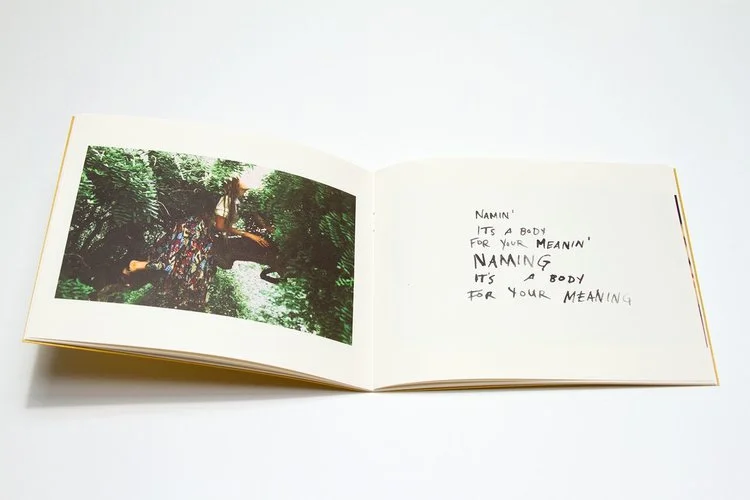 NAMIN'
ITS A BODY
FOR YOUR MEANIN'
NAMING
IT'S A BODY
FOR YOUR MEANING